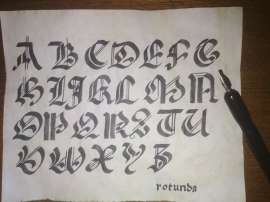 A B C D E F G
H I J K L M N
O P Q R S T U
V W X Y Z
rotunda